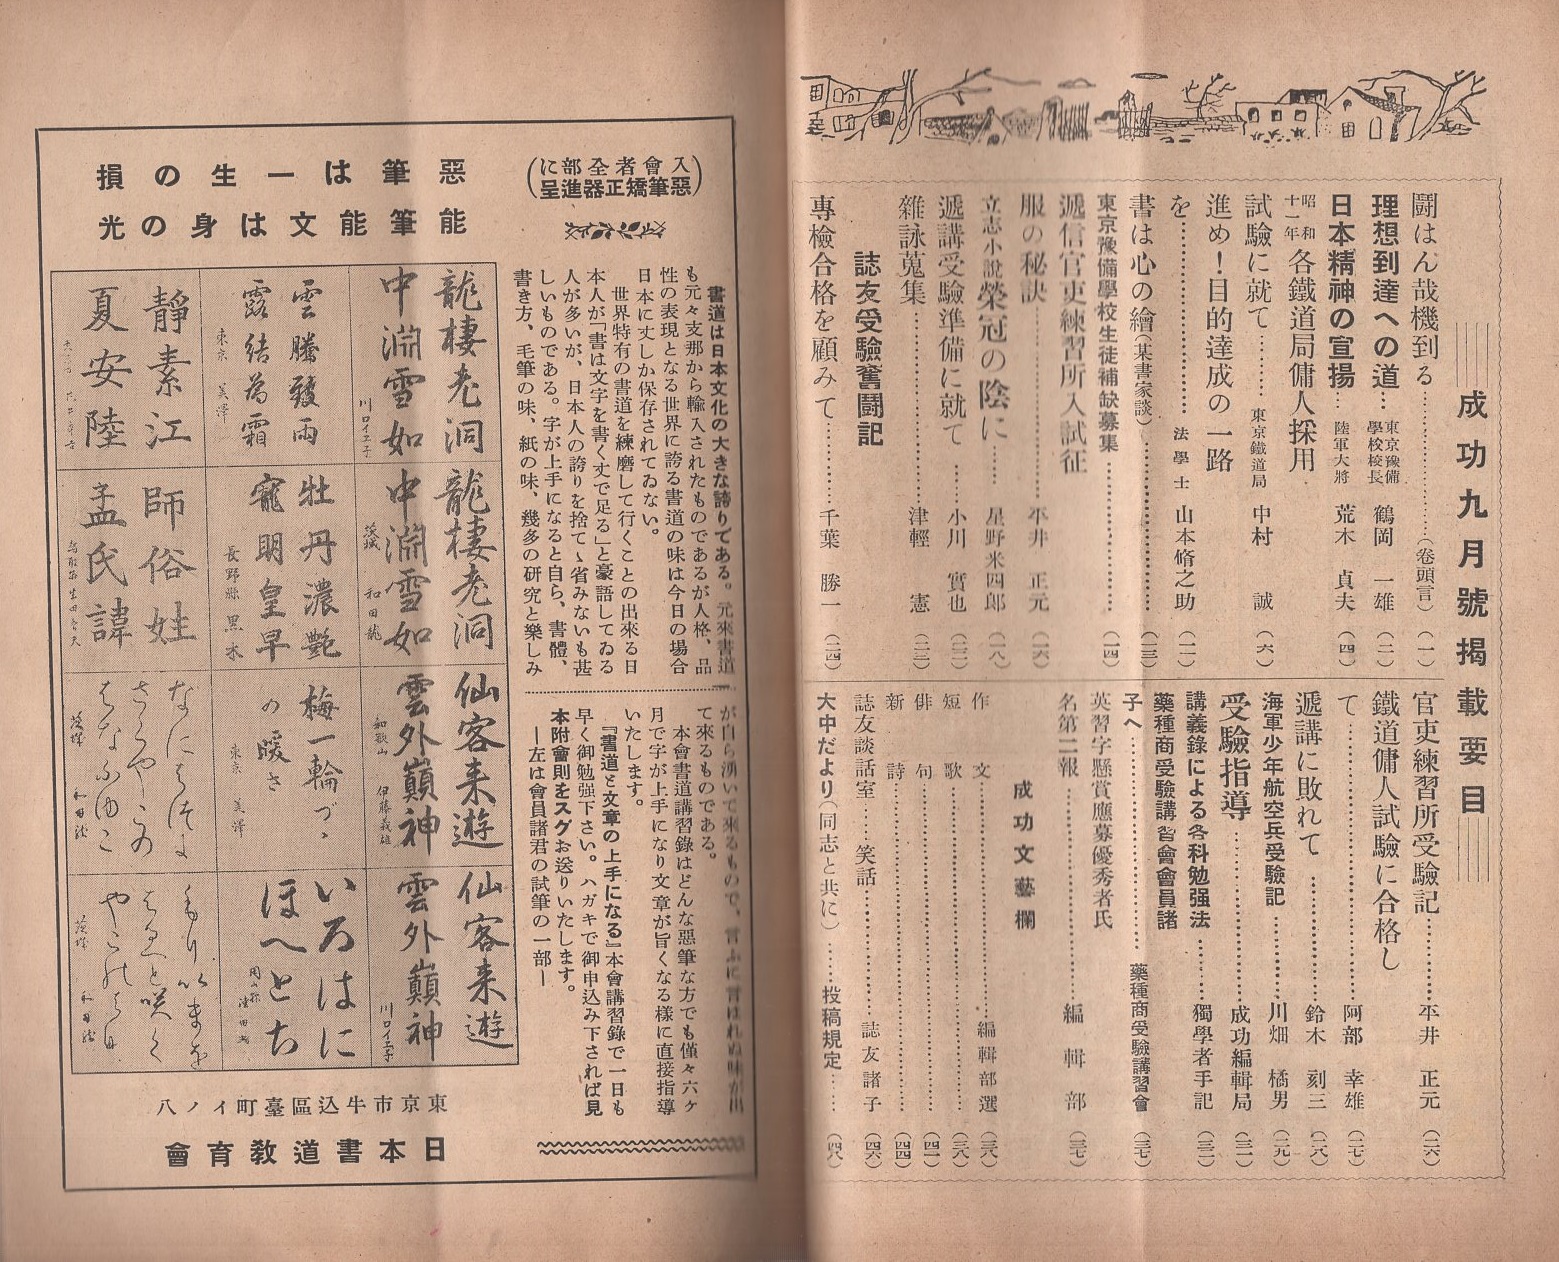 成功九月號揭載要目
鬪はん哉機到る…………(卷頭言)(一)
理想到達への道…東京豫備學校校長 鶴岡一雄(二)
日本精神の宣揚…陸軍大將 荒木貞夫(四)
昭和十一年各鐵道局傭人採用
試驗に就て………東京鐵道局 中村誠(六)
進め!目的達成の一路
を…………法學士 山本脩之助(一一)
書は心の繪(某書家談)…………(一三)
東京豫備學校生徒補缺募集…………(一四)
遞信官吏練習所入試征
服の秘訣…………平井正元(一六)
立志小說 榮冠の陰に……星野米四郎(一八)
遞講受驗準備に就て……小川實也(二二)
雜詠蒐集…………津輕憲(二三)
誌友受驗奮鬪記
專檢合格を顧みて…………千葉勝一(二四)
官吏練習所受驗記…………平井正元(二六)
鐵道傭人試驗に合格し
て…………阿部幸雄(二七)
遞講に敗れて…………鈴木刻三(二八)
海軍少年航空兵受驗記…………川畑橘男(二九)
受驗指導…………成功編輯局(三一)
講義錄による各科勉强法……獨學者手記(三二)
藥種商受驗講習會會員諸
子へ…………藥種商受驗講習會(三七)
英習字懸賞應募優秀者氏
名第二報…………編輯部(三七)
成功文藝欄
作文…………編輯部選(三八)
短歌…………(三八)
俳句…………(四一)
新詩…………(四四)
誌友談話室……笑話…………誌友諸子(四六)
大中だより(同志と共に)……投稿規定……(四八)
入會者全部に
(惡筆矯正器進呈)
惡筆は一生の損
能筆能文は身の光
書道は日本文化の大きな誇りである。元來書道
も元々支那から輸入されたものであるが人格、品
性の表現となる世界に誇る書道の味は今日の場合
日本に丈しか保存されてゐない。
世界特有の書道を練磨して行くことの出來る日
本人が「書は文字を書く丈で足る」と豪語してゐる
人が多いが、日本人の誇りを捨て〻省みないも甚
しいものである。字が上手になると自ら、書體、
書き方、毛筆の味、紙の味、幾多の硏究と樂しみ
が自ら湧いて來るもので、言ふに言はれぬ味が出
て來るものである。
本會書道講習錄はどんな惡筆な方でも僅々六ケ
月で字が上手になり文章が旨くなる樣に直接指導
いたします。
『書道と文章の上手になる』本會講習錄で一日も
早く御勉强下さい。ハガキで御申込み下されば見
本附會則をスグお送りいたします。
―左は會員諸君の試筆の一部―
龍棲老洞
中淵雪如
川ロイエ子
雲騰致雨
露結為霜
東京 美澤
靜素江
夏安陸
龍棲老洞
中淵雪如
茨城 和田龍
牡丹濃艷
寵明皇早
長野縣 黑木
師俗姓
孟氏諱
仙客来遊
雲外巔神
和歌山 伊藤義雄
梅一輪づゝ
の暖さ
東京 美澤
なにはづに
さくやこの
はなふゆこ
茨城 和田龍
仙客来遊
雲外巔神
川ロイエ子
いろはに
ほへとち
もりいまを
はるべと咲く
やこのはな
茨城 和田龍
東京市牛込區臺町イノ八
日本書道敎育會